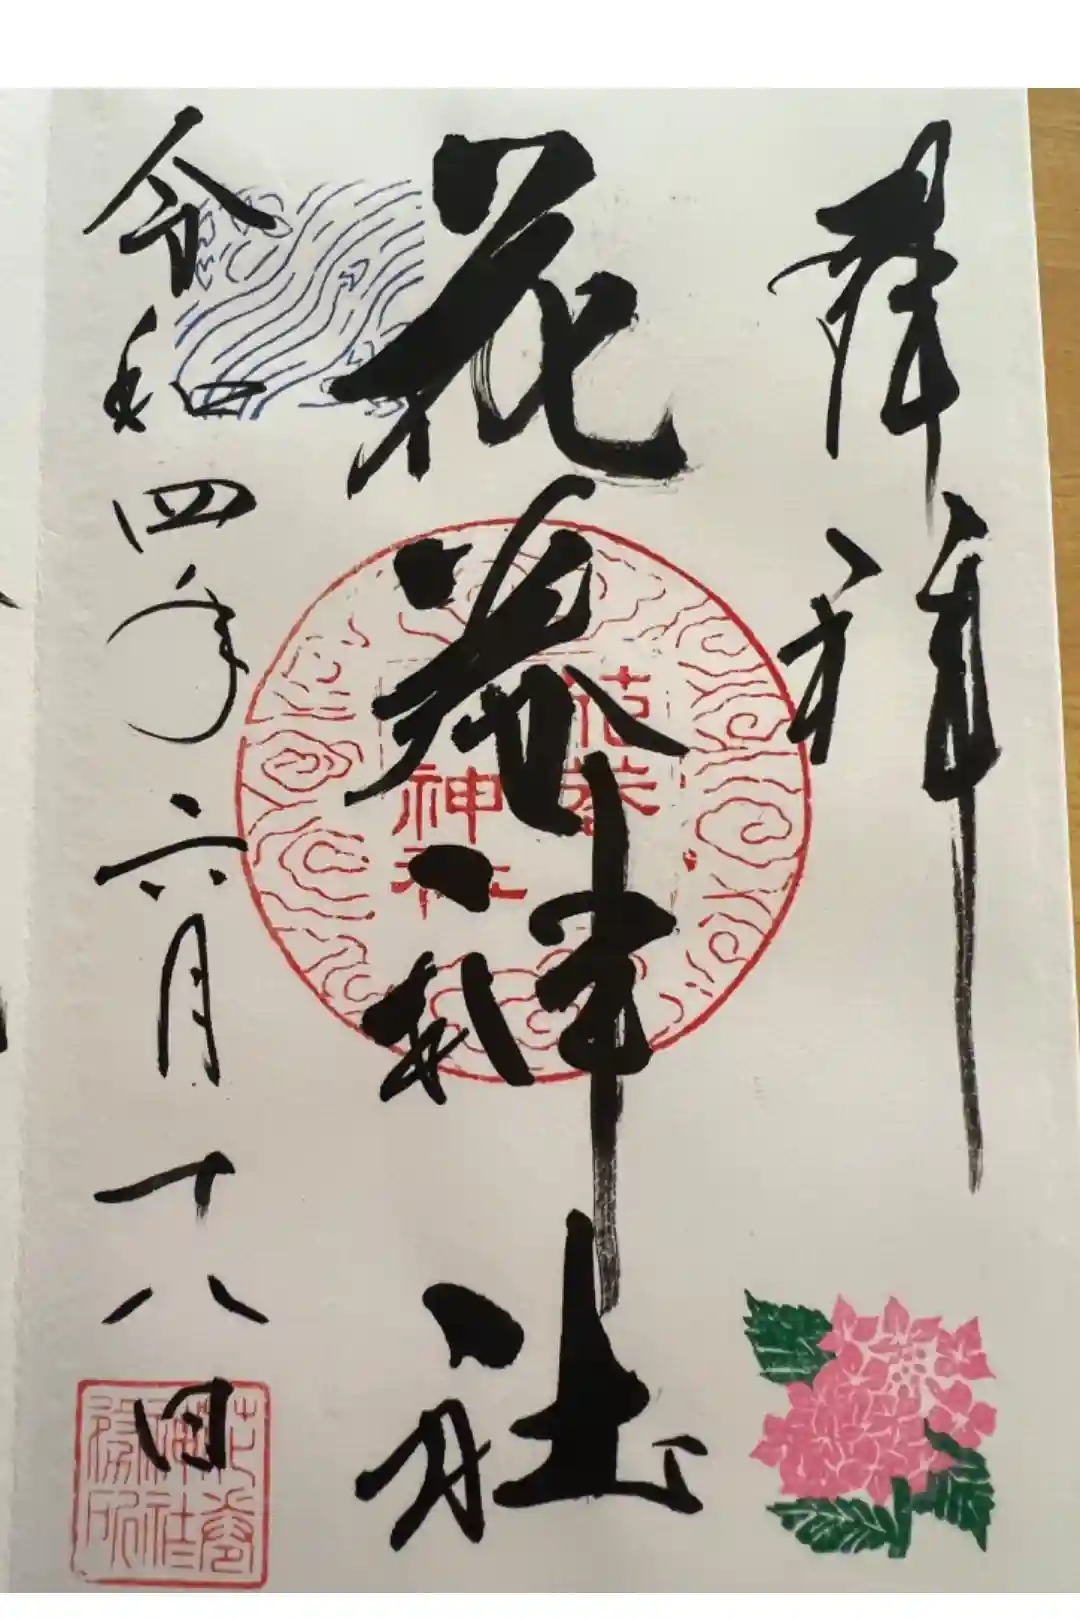 奉拝
花巻神社
花巻
神社
令和四年六月十八日
花巻
神社
務所